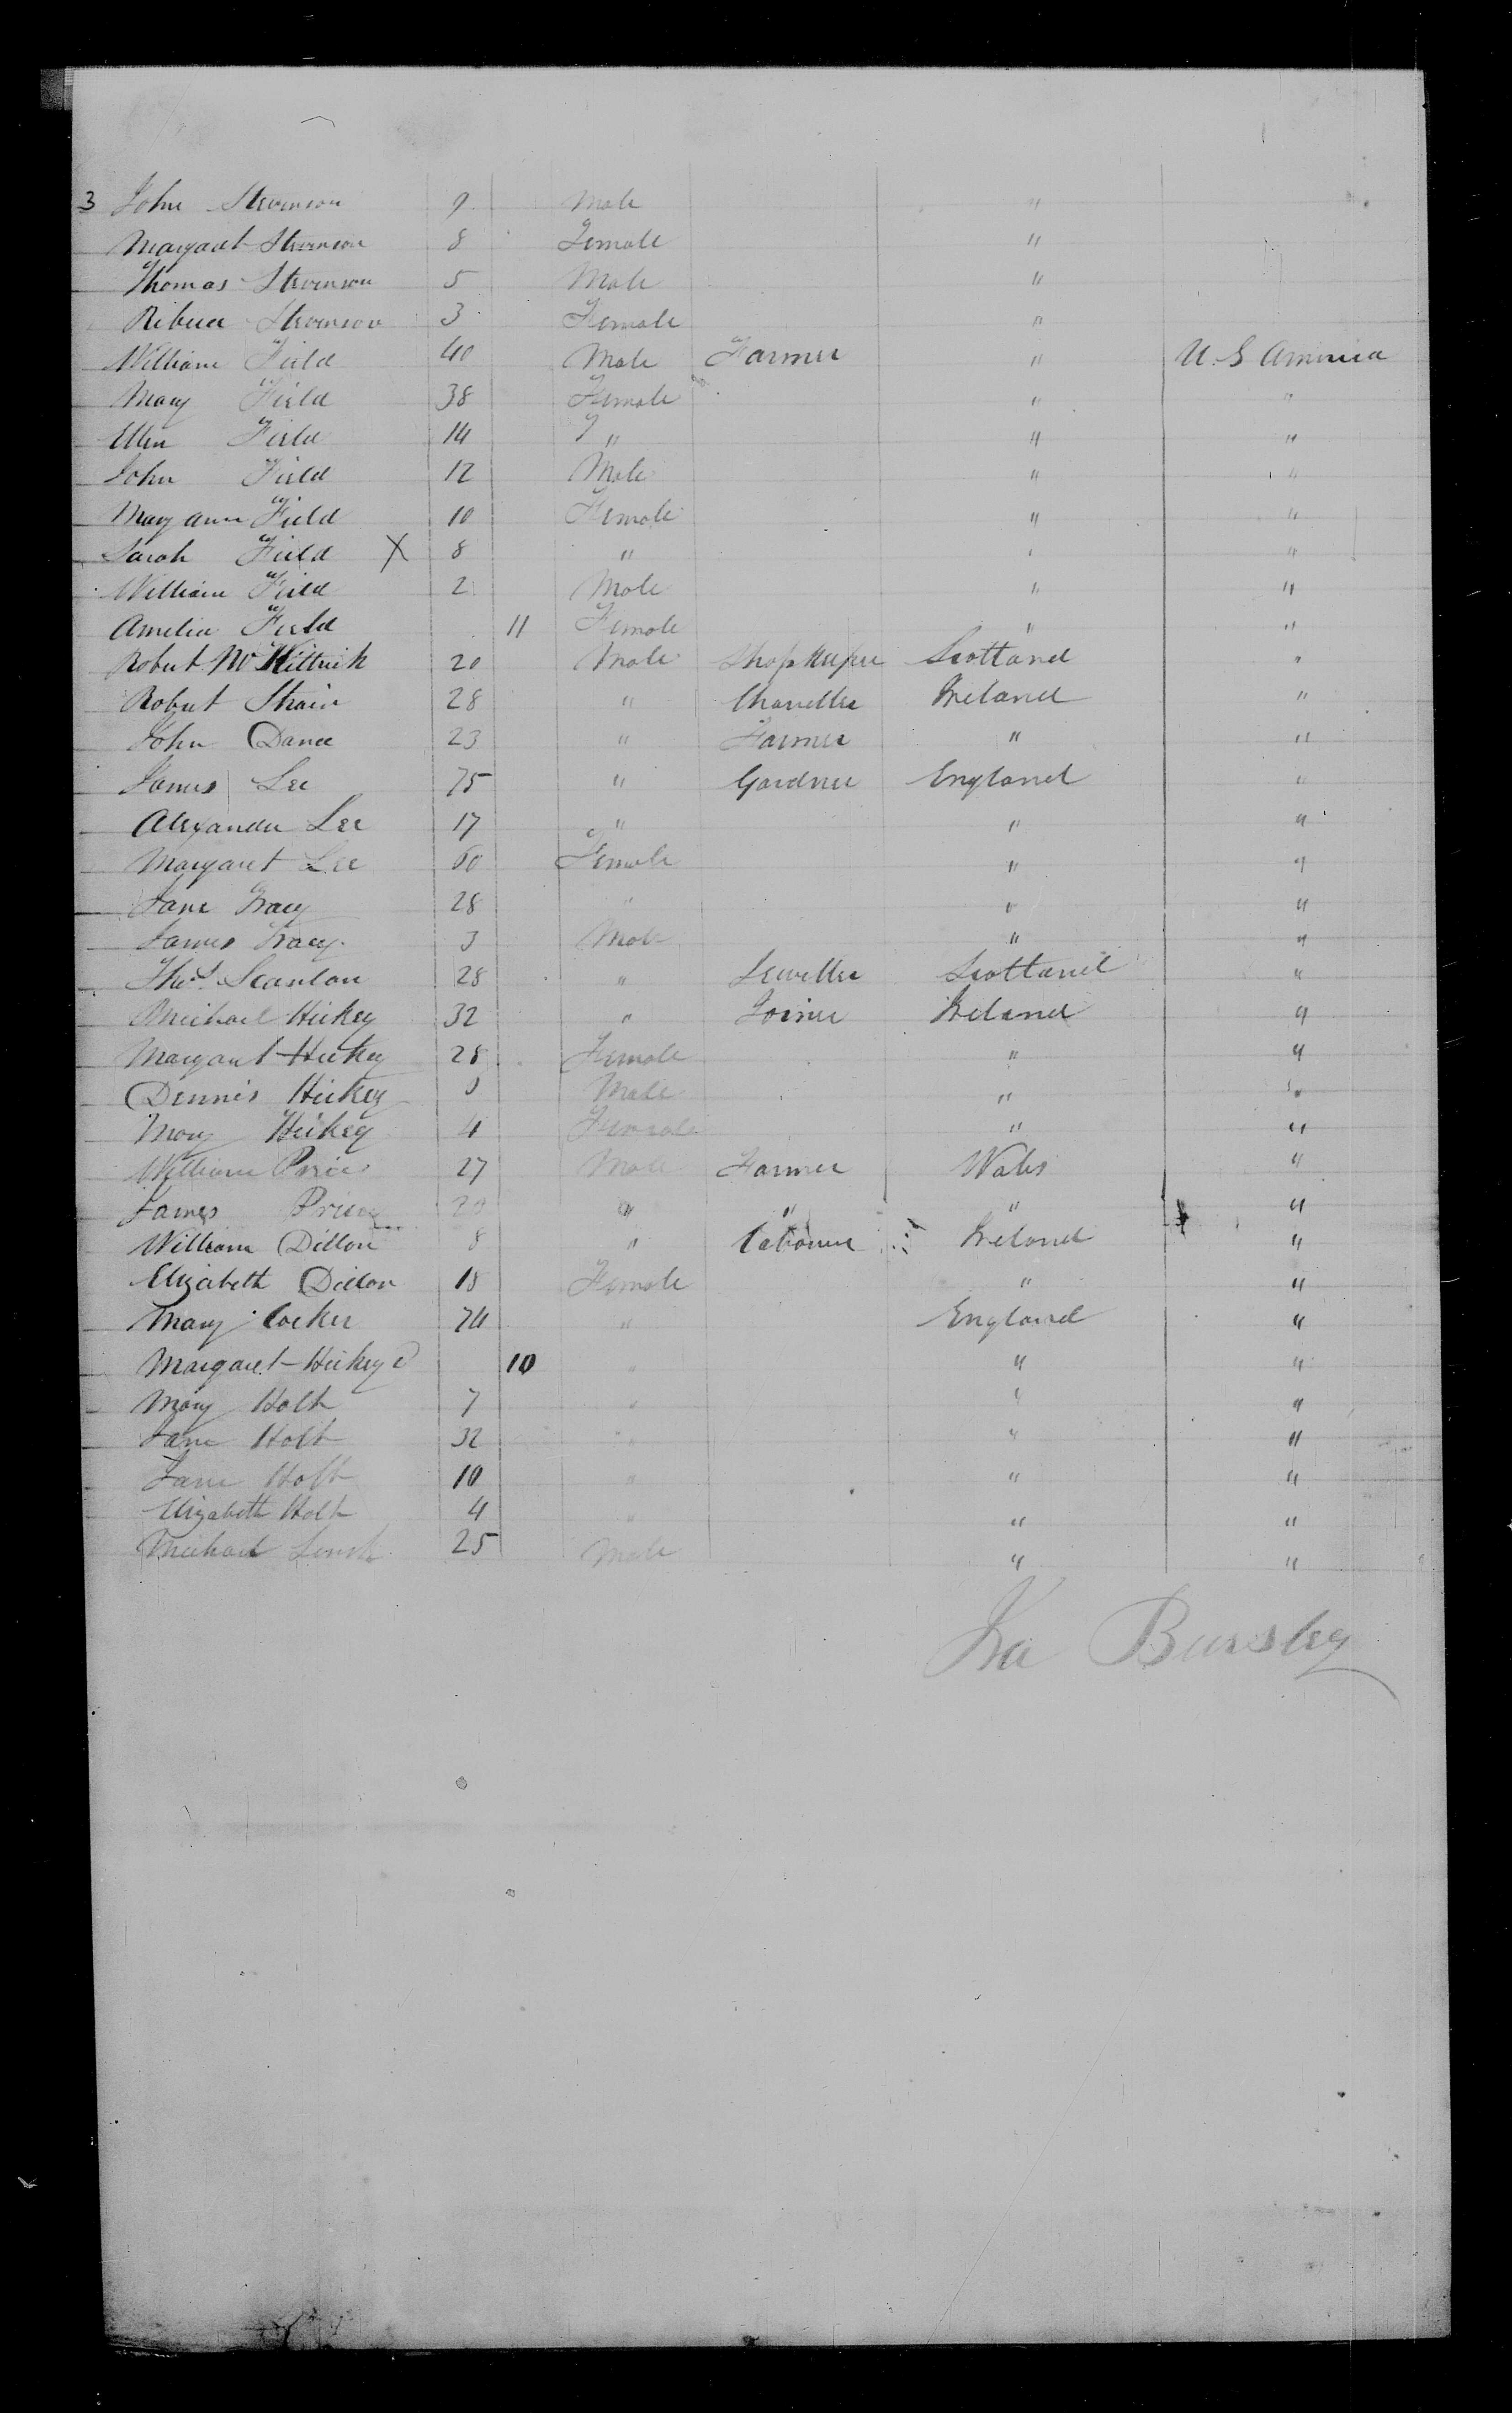 3 John Stevenson 9 Male "
Margaret Stevenson 8 Female "
Thomas Stevenson 5 Male "
Ribeca Stevenson 3 Female "
William Field 40 Male Farmer " U. S America
Mary Field 38 Female " "
Ellen Field 14 " " "
John Field 12 Male " "
Mary ann Field 10 Female " "
Sarah Field X 8 " " "
William Field 2 Male " "
Amelia Field 11 Female " "
Robert Mc Kittrick 20 Male Shop Keeper Scotland "
Robert Strain 28 " Chandler Ireland "
John Dance 23 " Farmer " "
James Lee 75 " Gardner England "
Alexander Lee 17 " " "
Margaret Lee 60 Female " "
Jane Tracy 28 " " "
James Tracy 3 Male " "
Thos. Scanlon 28 " Jeweller Scotland "
Michael Hickey 32 " Joiner Ireland "
Margaret Hickey 28 Female " "
Dennis Hickey Male " "
Mary Hickey 4 Female " "
William Price 27 Male Farmer Wales "
James Price " " " "
William Dillon 8 " Labourer Ireland "
Elizabeth Dillon 18 Female " "
Mary Cocker 74 " England "
Margaret Hickey 10 " " "
Mary Holt 7 " " "
Jane Holt 32 " " "
Jane Holt 10 " " "
Elizabeth Holt 4 " " "
Michael 25 Male " "
Ira Bursley